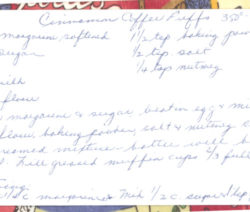 Cinnamon Coffee Puffs 350°
margarine, softened 1 1/2 tsp baking pow
sugar 1/2 tsp salt
1/4 tsp nutmeg
milk
flour
margarine & sugar. beat in egg & mi
flour, baking powder, salt & nutmeg
creamed mixture. batter will b
Fill greased muffin cups 2/3 full
margarine Mix 1/2 c sugar 1 tsp